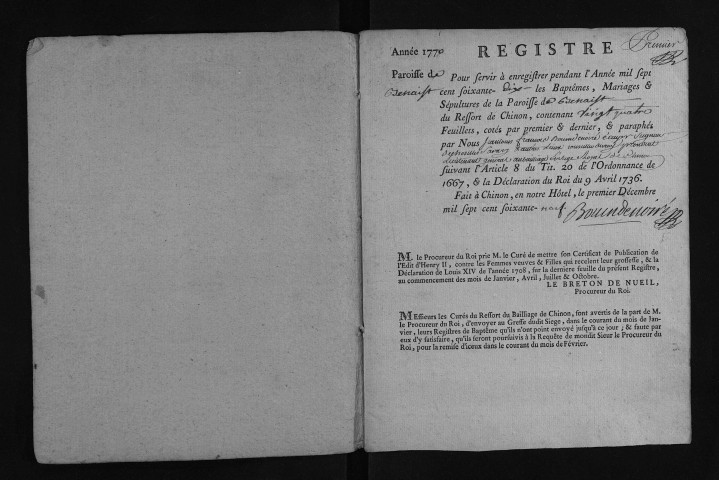 Année 1770 REGISTRE Premier
Paroisse de Benaist
Pour servir à enregistrer pendant l'Année mil sept
cent soixante-dix les Baptêmes, Mariages &
Sépultures de la Paroisse de Benaist
du Ressort de Chinon, contenant vingt quatre
Feuillets, cotés par premier & dernier, & paraphés
par Nous
suivant l'Article 8 du Tit. 20 de l'Ordonnance de
1667, & la Déclaration du Roi du 9 Avril 1736.
Fait à Chinon, en notre Hôtel, le premier Décembre
mil sept cent soixante-neuf.
M. le Procureur du Roi prie M. le Curé de mettre son Certificat de Publication de
l'Edit d'Henry II, contre les Femmes veuves & Filles qui recelent leur grossesse, & la
Déclaration de Louis XIV de l'année 1708, sur la derniere feuille du présent Registre,
au commencement des mois de Janvier, Avril, Juillet & Octobre.
LE BRETON DE NUEIL,
Procureur du Roi.
MEssieurs les Curés du Ressort du Bailliage de Chinon, sont avertis de la part de M.
le Procureur du Roi, d'envoyer au Greffe dudit Siege, dans le courant du mois de Jan-
vier, leurs Registres de Baptême qu'ils n'ont point envoyé jusqu'à ce jour; & faute par
eux d'y satisfaire, qu'ils seront poursuivis à la Requête de mondit Sieur le Procureur du
Roi, pour la remise d'iceux dans le courant du mois de Février.